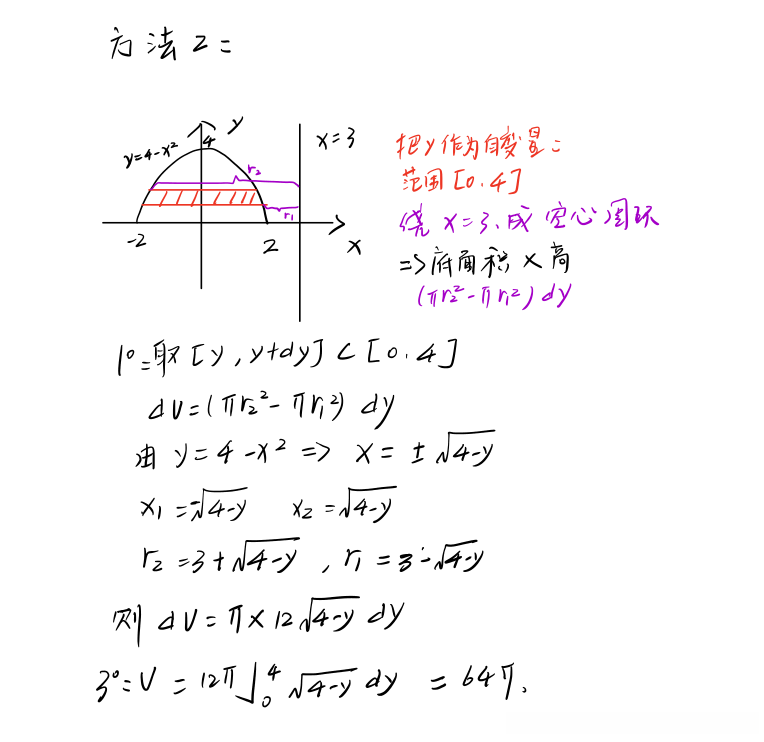 方法2:
y
4
y=4-x²
x=3
r₂
r₁
-2
2
x
把y作为自变量:
范围[0,4]
绕 x=3,成空心圆环
=>底面积×高
(πr₂²-πr₁²)dy
1°:取[y,y+dy]⊂[0,4]
dV=(πr₂²-πr₁²) dy
由 y=4-x² => x=±√(4-y)
x₁=-√(4-y) x₂=√(4-y)
r₂=3+√(4-y) , r₁=3-√(4-y)
则 dV=π×12√(4-y) dy
3°:V = 12π∫₀⁴ √(4-y) dy = 64π.